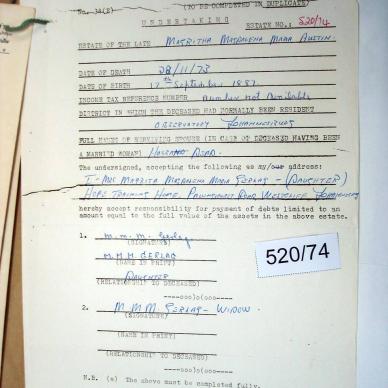 No. 38(E) (TO BE COMPLETED IN DUPLICATE)
UNDERTAKING
ESTATE NO.: 520/74
ESTATE OF THE LATE Magritha Magdalena Maria Austin.
DATE OF DEATH 28/11/73
DATE OF BIRTH 17th September 1887
INCOME TAX REFERENCE NUMBER number not available
DISTRICT IN WHICH THE DECEASED HAD NORMALLY BEEN RESIDENT
OBSERVATORY JOHANNESBURG
FULL NAMES OF SURVIVING SPOUSE (IN CASE OF DECEASED HAVING BEEN
A MARRIED WOMAN) Husband Dead.
The undersigned, accepting the following as my/our address:
(DAUGHTER)
HOPE TRAINING HOME, ROAD WESTCLIFF JOHANNESBURG
hereby accept responsibility for payment of debts limited to an
amount equal to the full value of the assets in the above estate.
1. M.M.M.
(SIGNATURE)
M.M.M.
(NAME IN PRINT)
DAUGHTER
(RELATIONSHIP TO DECEASED)
----ooo)o(ooo----
520/74
2. M.M.M. - WIDOW.
(SIGNATURE)
(NAME IN PRINT)
(RELATIONSHIP TO DECEASED)
----ooo)o(ooo----
N.B. (a) The above must be completed fully.